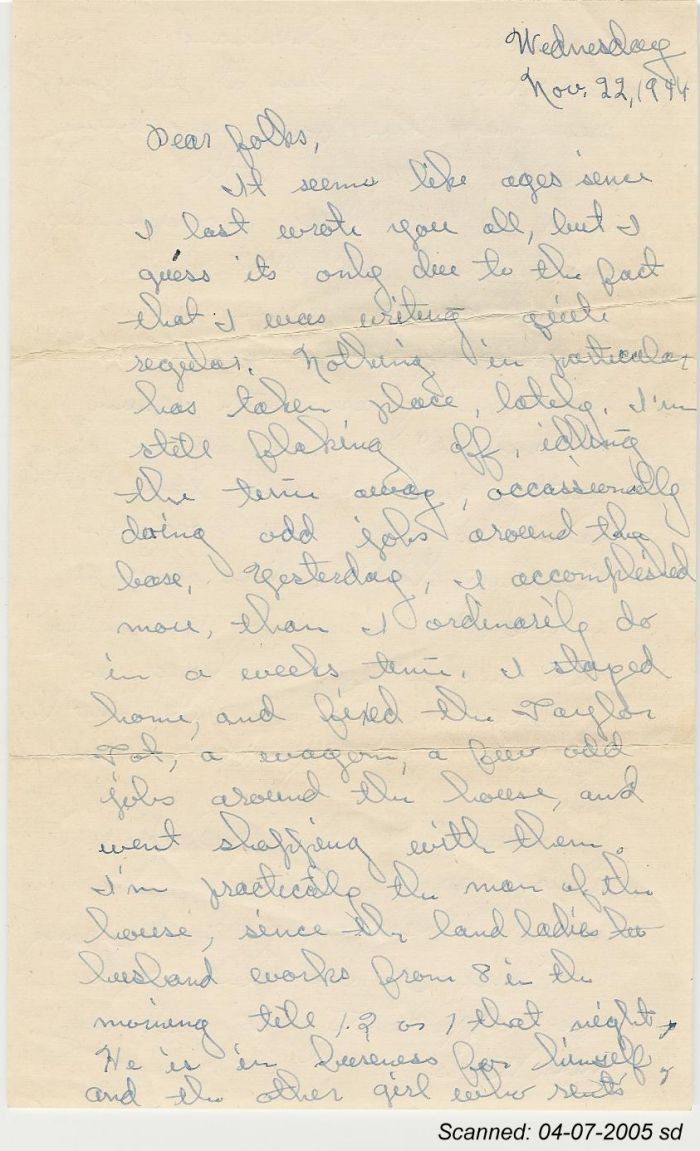 Wednesday
Nov. 22, 1944
Dear folks,
It seems like ages since
I last wrote you all, but I
guess its only due to the fact
that I was writing quite
regular. Nothing in particular
has taken place, lately. I'm
still flaking off, idling
the time away, occassionally
doing odd jobs around the
base. Yesterday, I accomplished
more, than I ordinarily do
in a weeks time. I stayed
home, and fixed the Taylor
Tot, a wagon, a few odd
jobs around the house, and
went shopping with them.
I'm practicily the man of the
house, since the land ladies
husband works from 8 in the
morning till 12 or 1 that night,
He is in buisness for himself,
and the other girl who rents
Scanned: 04-07-2005 sd